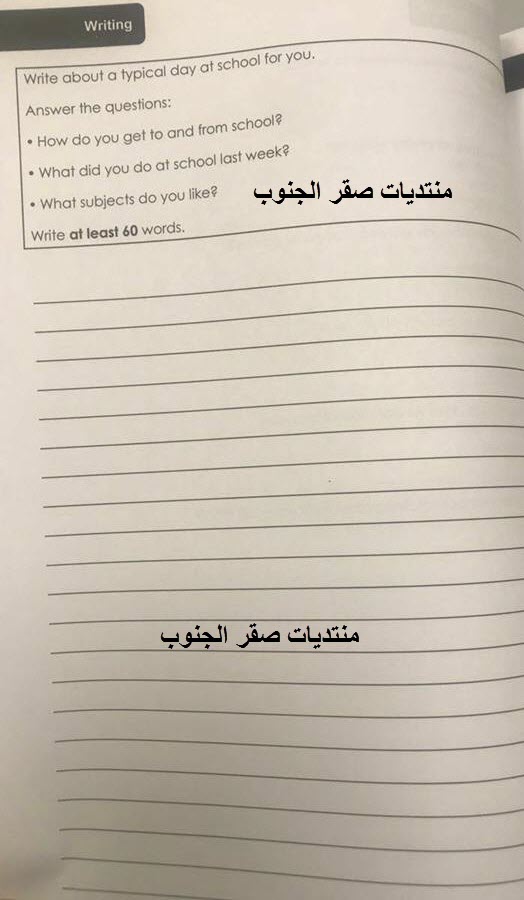 Writing
Write about a typical day at school for you.
Answer the questions:
• How do you get to and from school?
• What did you do at school last week?
• What subjects do you like?
منتديات صقر الجنوب
Write at least 60 words.
منتديات صقر الجنوب